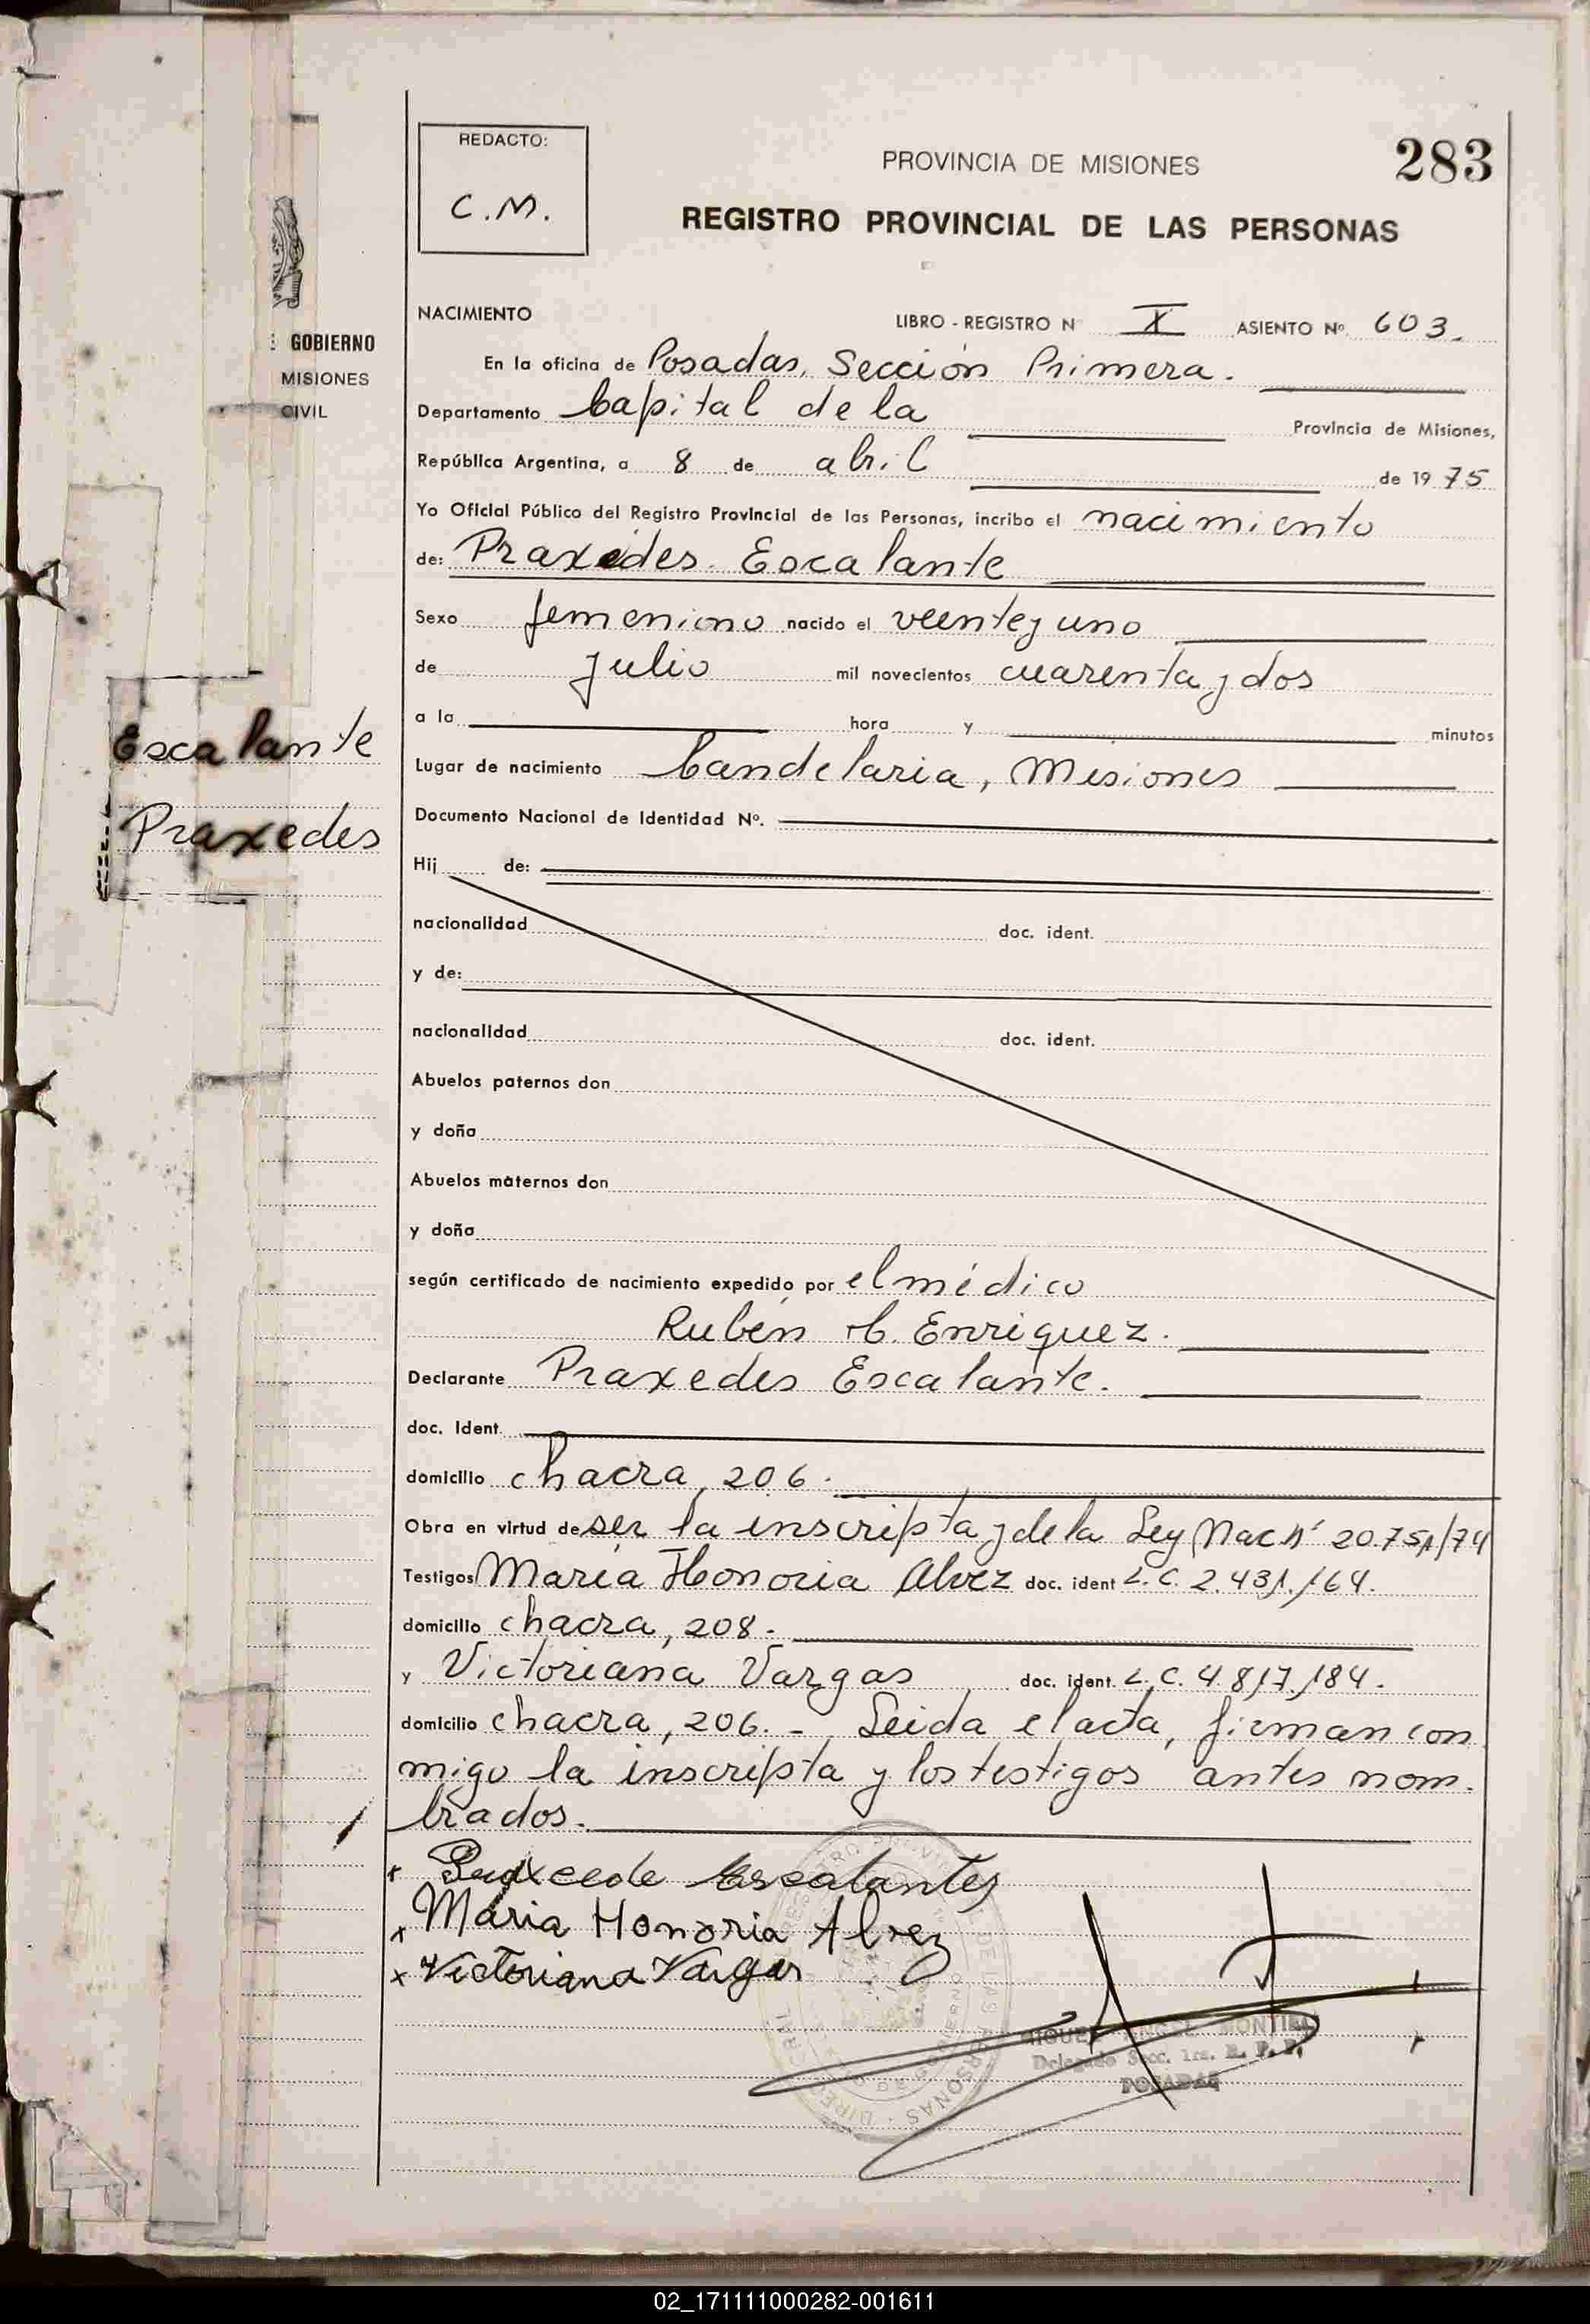 REDACTO:
C.M.
PROVINCIA DE MISIONES
283
REGISTRO PROVINCIAL DE LAS PERSONAS
GOBIERNO
MISIONES
CIVIL
NACIMIENTO LIBRO - REGISTRO N I ASIENTO Nº 603.
En la oficina de Posadas, Sección Primera.
Departamento Capital de la Provincia de Misiones,
República Argentina, a 8 de abril de 1975
Yo Oficial Público del Registro Provincial de las Personas, incribo el nacimiento
de: Praxedes Escalante
Sexo femenino nacido el veintey uno
de julio mil novecientos cuarenta y dos
a la hora y minutos
Escalante
Praxedes
Lugar de nacimiento Candelaria, Misiones
Documento Nacional de Identidad Nº.
Hij de:
nacionalidad doc. ident.
y de:
nacionalidad doc. ident.
Abuelos paternos don
y doña
Abuelos maternos don
y doña
según certificado de nacimiento expedido por el médico
Rubén Enriquez.
Declarante Praxedes Escalante.
doc. Ident.
domicilio chacra, 206.
Obra en virtud de ser la inscripta y de la Ley Nac Nº 20.751/74
Testigos María Honoria Alvez doc. ident L.C. 2.431.164.
domicilio chacra, 208.
y Victoriana Vargas doc. ident. L.C. 4.817.184.
domicilio chacra, 206. - Leida el acta, firman con
migo la inscripta y los testigos antes nom-
brados.
x Praxcede Escalantes
x Maria Honoria Alvez
x Victoriana Vargas
MIGUEL ANGEL MONTIEL
Delegado Secc. 1ra. R. P. P.
POSADAS
02_171111000282-001611